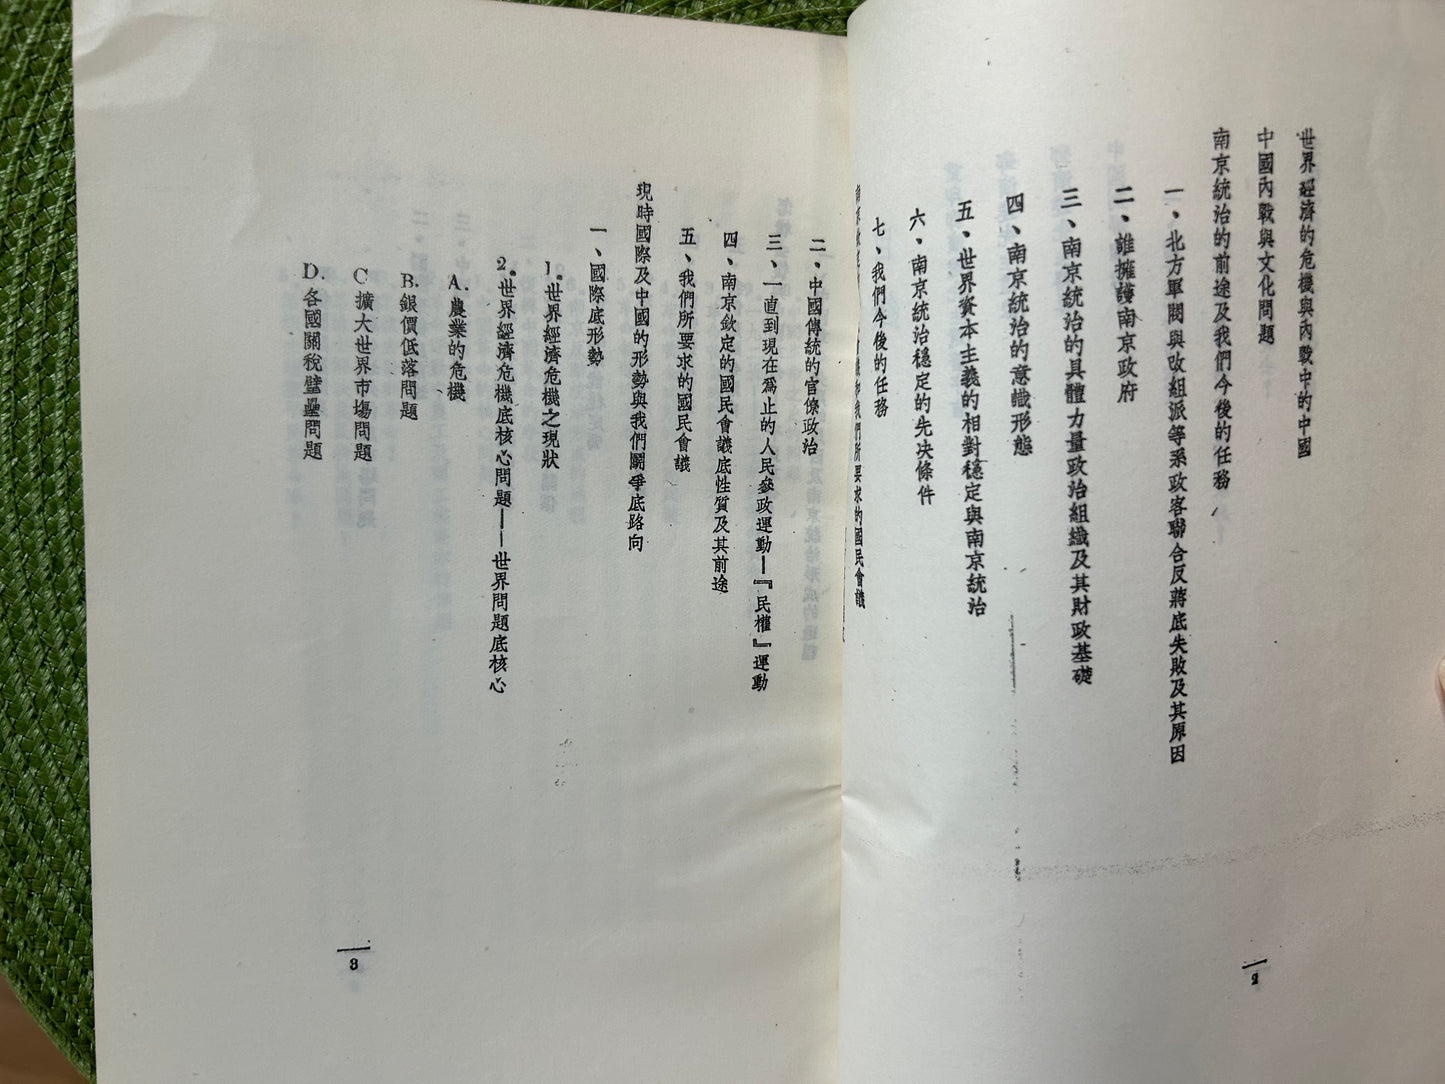 世界經濟的危機與內戰中的中國
中國內戰與文化問題
南京統治的前途及我們今後的任務
一、北方軍閥與改組派等系政客聯合反蔣底失敗及其原因
二、誰擁護南京政府
三、南京統治的具體力量政治組織及其財政基礎
四、南京統治的意識形態
五、世界資本主義的相對穩定與南京統治
六、南京統治穩定的先決條件
七、我們今後的任務
我們所要求的國民會議
2
二、中國傳統的官僚政治
三、一直到現在爲止的人民參政運動—『民權』運動
四、南京欽定的國民會議底性質及其前途
五、我們所要求的國民會議
現時國際及中國的形勢與我們鬭爭底路向
一、國際底形勢
1. 世界經濟危機之現狀
2. 世界經濟危機底核心問題——世界問題底核心
A. 農業的危機
B. 銀價低落問題
C 擴大世界市塲問題
D. 各國關稅壁壘問題
3